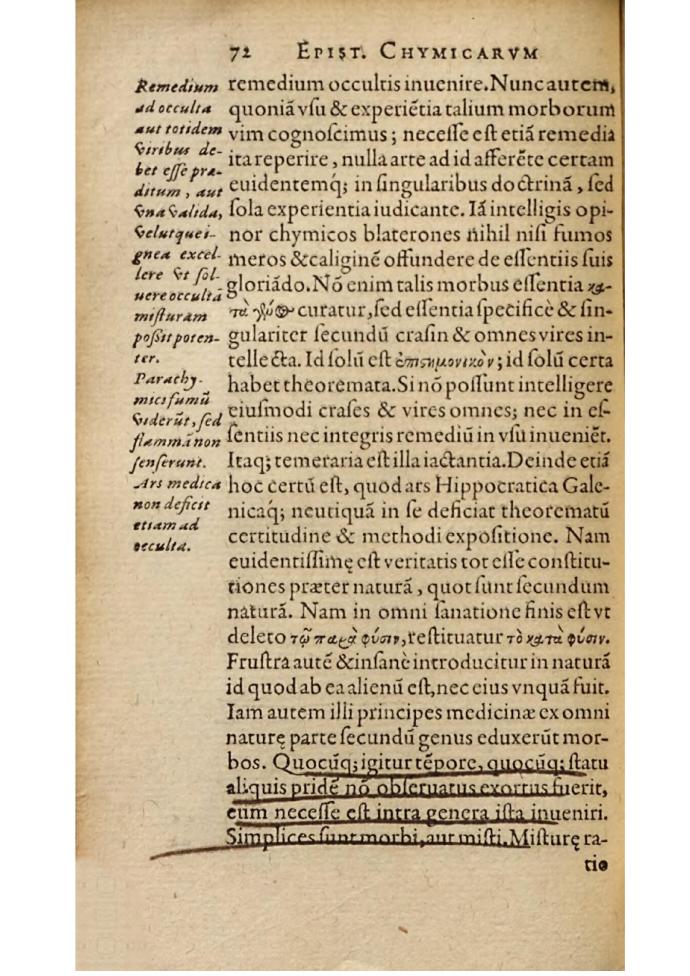 72 EPIST. CHYMICARVM
Remedium
ad occulta
aut totidem
viribus de-
bet esse præ-
ditum, aut
vna valida,
velut quei-
gnea excel-
lere vt sol-
uere occultā
misturam
possit poten-
ter.
Parachy-
mici fumū
viderūt, sed
flammā non
senserunt.
Ars medica
non deficit
etiam ad
occulta.
remedium occultis inuenire. Nunc autem,
quoniā vsu & experiētia talium morborum
vim cognoscimus; necesse est etiā remedia
ita reperire, nulla arte ad id afferēte certam
euidentemq́; in singularibus doctrinā, sed
sola experientia iudicante. Iā intelligis opi-
nor chymicos blaterones nihil nisi fumos
meros & caliginē offundere de essentiis suis
gloriādo. Nō enim talis morbus essentia κα-
τὰ γένος curatur, sed essentia specificè & sin-
gulariter secundū crasin & omnes vires in-
tellecta. Id solū est ἐπιστημονικὸν; id solū certa
habet theoremata. Si nō possunt intelligere
eiusmodi crases & vires omnes; nec in es-
sentiis nec integris remediū in vsu inueniēt.
Itaq; temeraria est illa iactantia. Deinde etiā
hoc certū est, quod ars Hippocratica Gale-
nicaq́; neutiquā in se deficiat theorematū
certitudine & methodi expositione. Nam
euidentissimę est veritatis tot esse constitu-
tiones præter naturā, quot sunt secundum
naturā. Nam in omni sanatione finis est vt
deleto τῷ παρὰ φύσιν, restituatur τὸ κατὰ φύσιν.
Frustra autē & insanè introducitur in naturā
id quod ab ea alienū est, nec eius vnquā fuit.
Iam autem illi principes medicinæ ex omni
naturę parte secundū genus eduxerūt mor-
bos. Quocūq; igitur tēpore, quocūq; statu
aliquis pridē nō obseruatus exortus fuerit,
eum necesse est intra genera ista inueniri.
Simplices sunt morbi, aut misti. Misturę ra-
tio